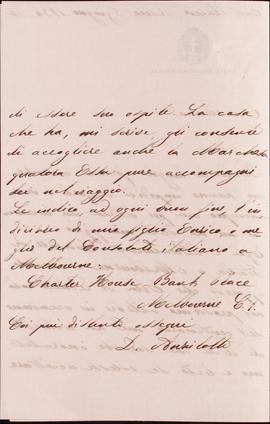 di essere suo ospite. La casa
che ha, mi scrive, gli consente
di accogliere anche la March.
qualora Essa pure accompagni
Lei nel viaggio.
Le indico, ad ogni buon fine l'in
dirizzo di mio figlio Enrico, o me
glio del Consolato italiano a
Melbourne:
Charter House Bank Place
Melbourne C.1.
Coi più distinti ossequi
D. Anzilotti